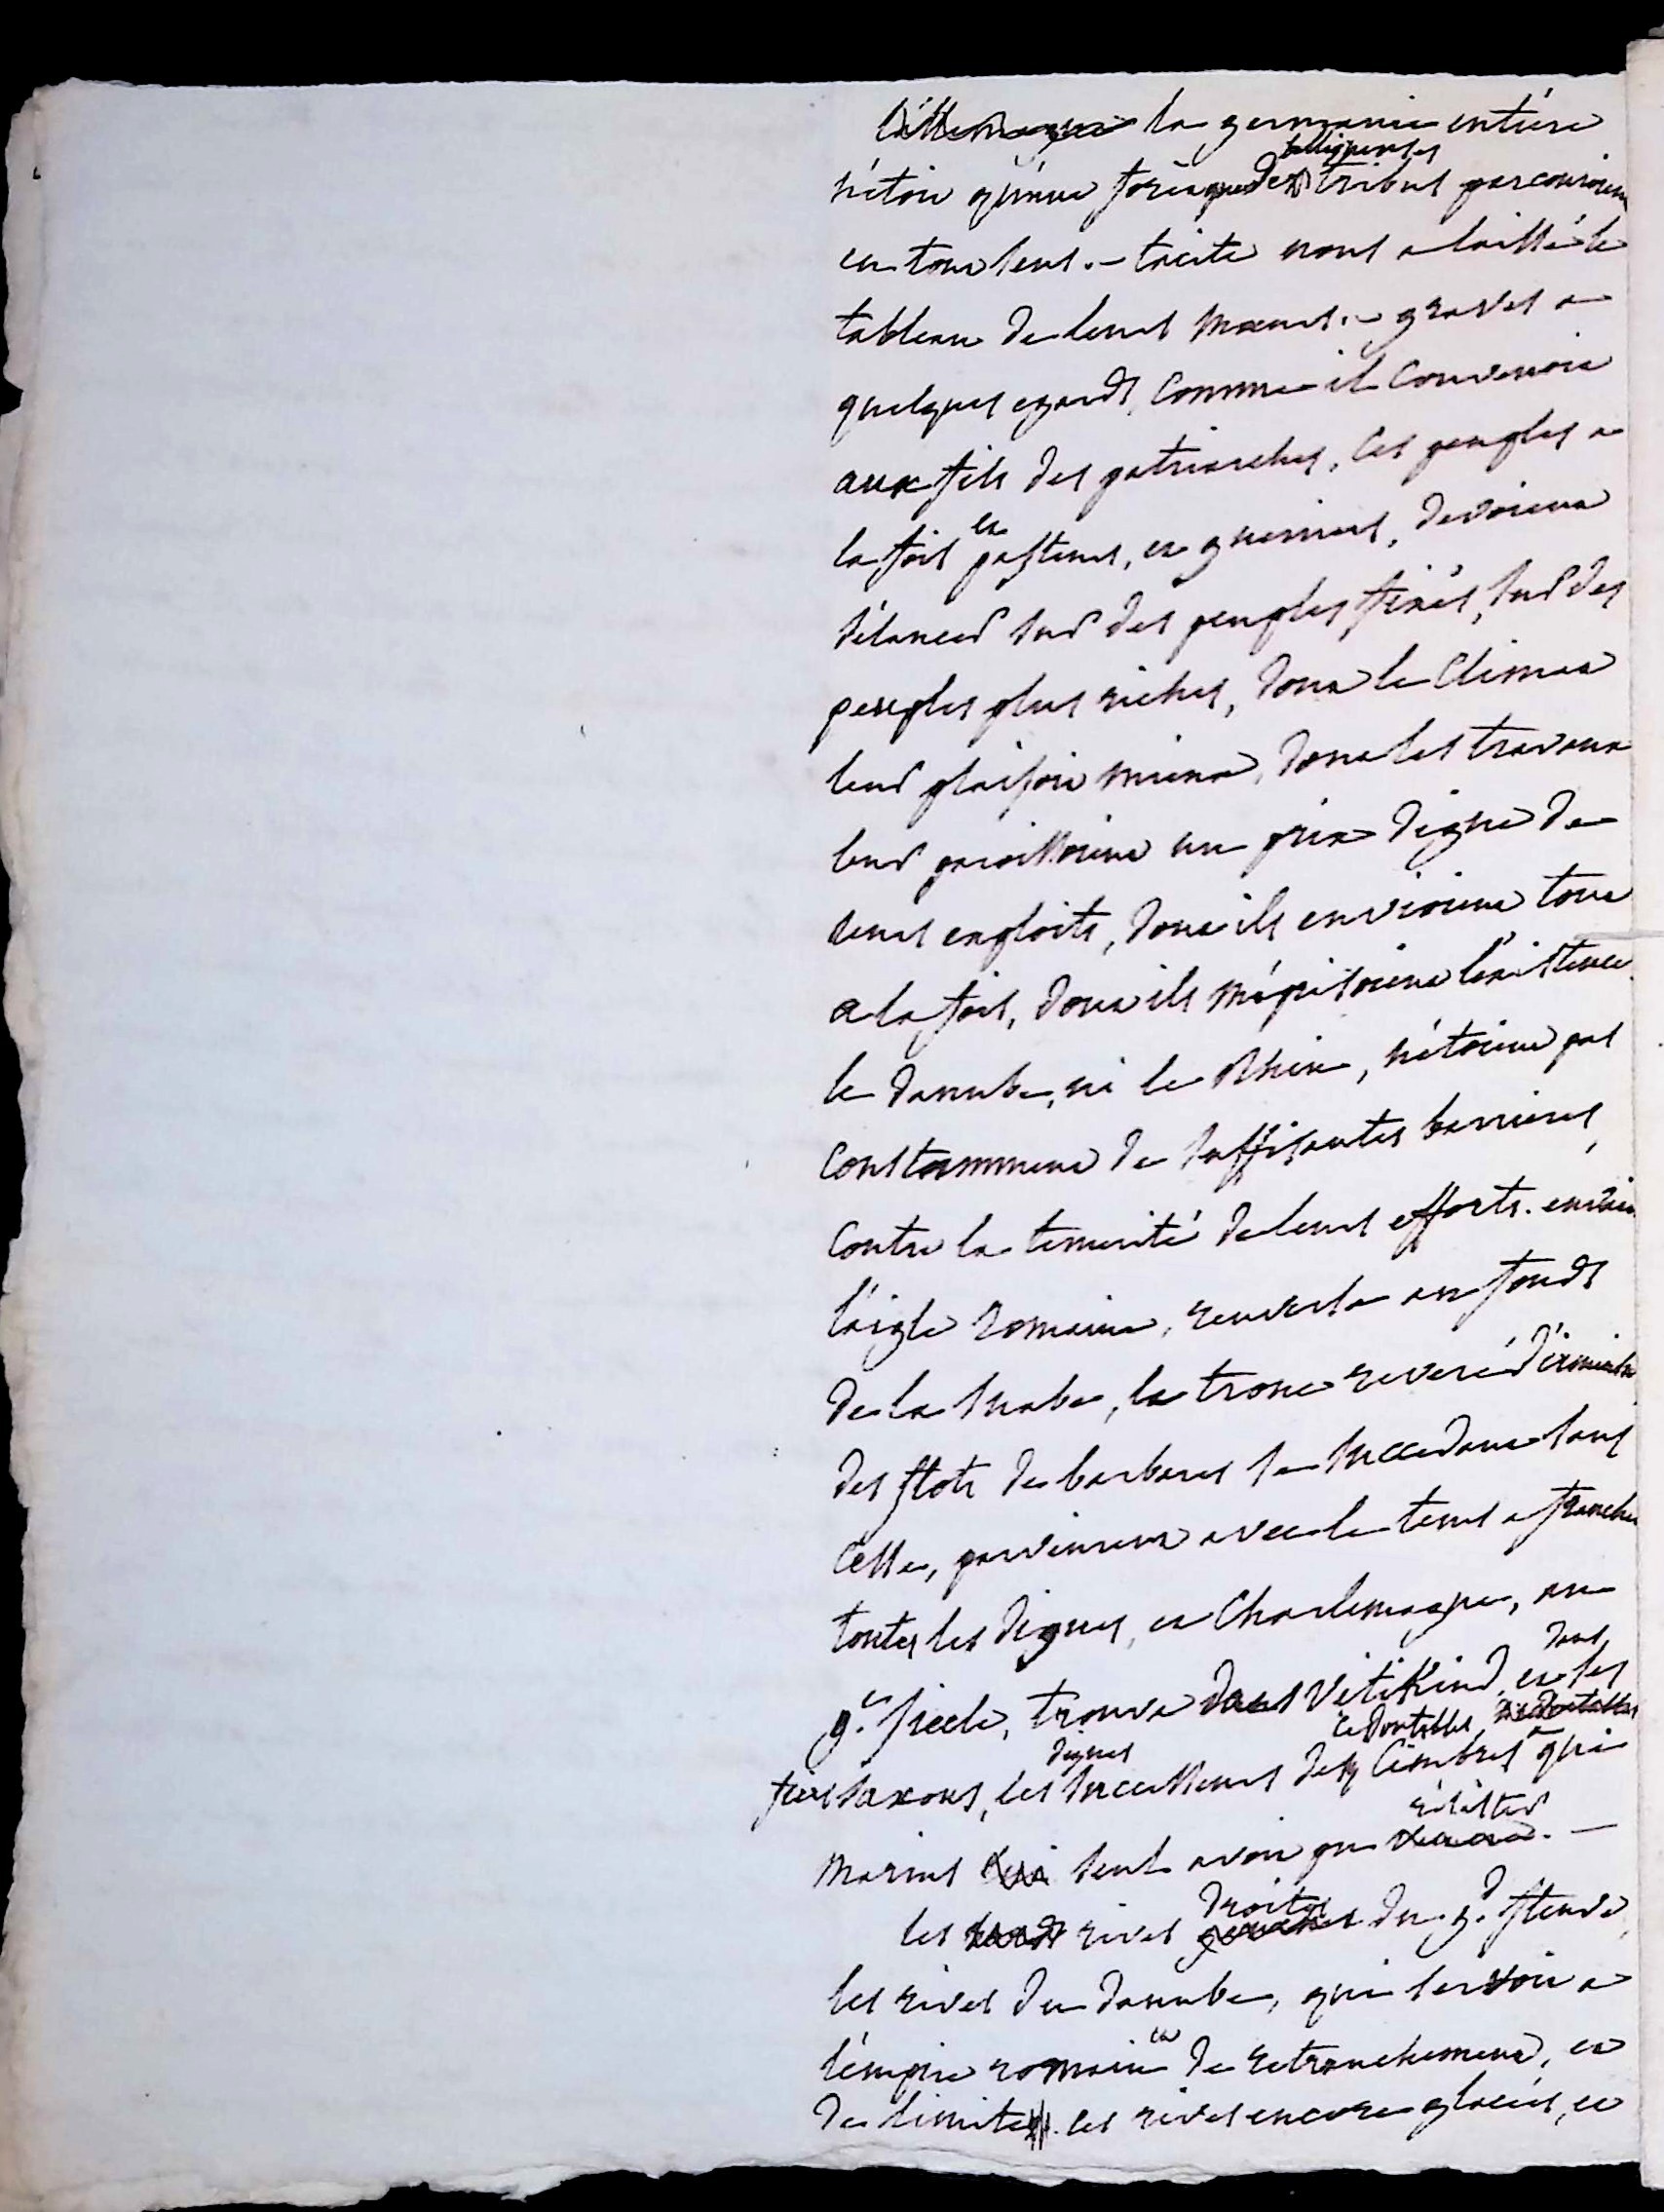 la germanie entière
n'étoit qu'une forêt que des belliqueuses tribus parcouroient
en tout sens. – tacite nous a laissé le
tableau de leurs mœurs. – graves a
quelques egards, comme il convenoit
aux fils des patriarches, ces peuples a
la fois et pasteurs, et guerriers, devoient
s'élancer sur des peuples fixés, sur des
peuples plus riches, dont le climat
leur plaisoit mieux, dont les travaux
leur paroissoient un prix digne de
leurs exploits, dont ils envioient tout
a la fois, dont ils méprisoient l'existence.
le danube, ni le Rhin, n'étoient pas
constamment de suffisantes barrieres,
contre la temerité de leurs efforts. envain
l'aigle romaine, renversa au fonds
de la Suabe, le tronc reveré d'irminsul
des flots de barbares se succedant sans
cesse, parvinrent avec le tems a franchir
toutes les digues, et Charlemagne, au
9.e siecle, trouva dans Vitikind, et dans les
fiers saxons, les dignes successeurs des redoutables Cimbres que
marius seul avoit pu résister. –
les rives droites du g.d fleuve,
les rives du danube, qui servoit a
l'empire romain et de retranchement, et
de limites. les rives encore glacées, et